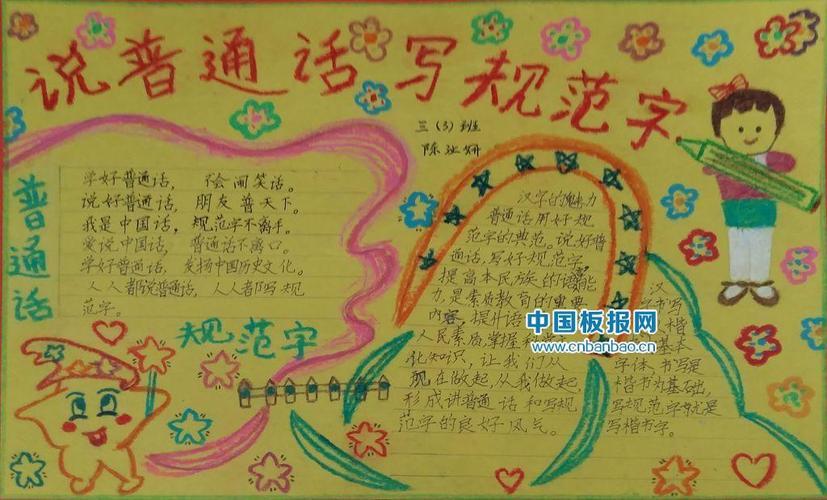 说普通话写规范字
三(3)班
普通话
学好普通话， 不会闹笑话。
说好普通话， 朋友普天下。
我是中国话， 规范字不离手。
爱说中国话， 普通话不离口。
学好普通话， 发扬中国历史文化。
人人都说普通话，人人都写规
范字。
规范字
汉字的魅力
普通话用好规
范字的典范。说好普
通话，写好规范字，
提高本民族的语言能
力，是素质教育的重要
内容，提升话
人民素质，掌握和
化知识，让我们从
现在做起，从我做起，
形成讲普通话和写规
范字的良好风气。
汉
字书写
楷
基本
字体，书写是
楷书为基础，
写规范字就是
写楷书字。
中国板报网
www.cnbanbao.cn